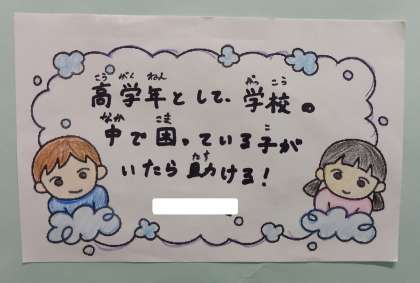 こう がく ねん がっ こう
高学年として、学校の
なか こま こ
中で困っている子が
たす
いたら助ける!